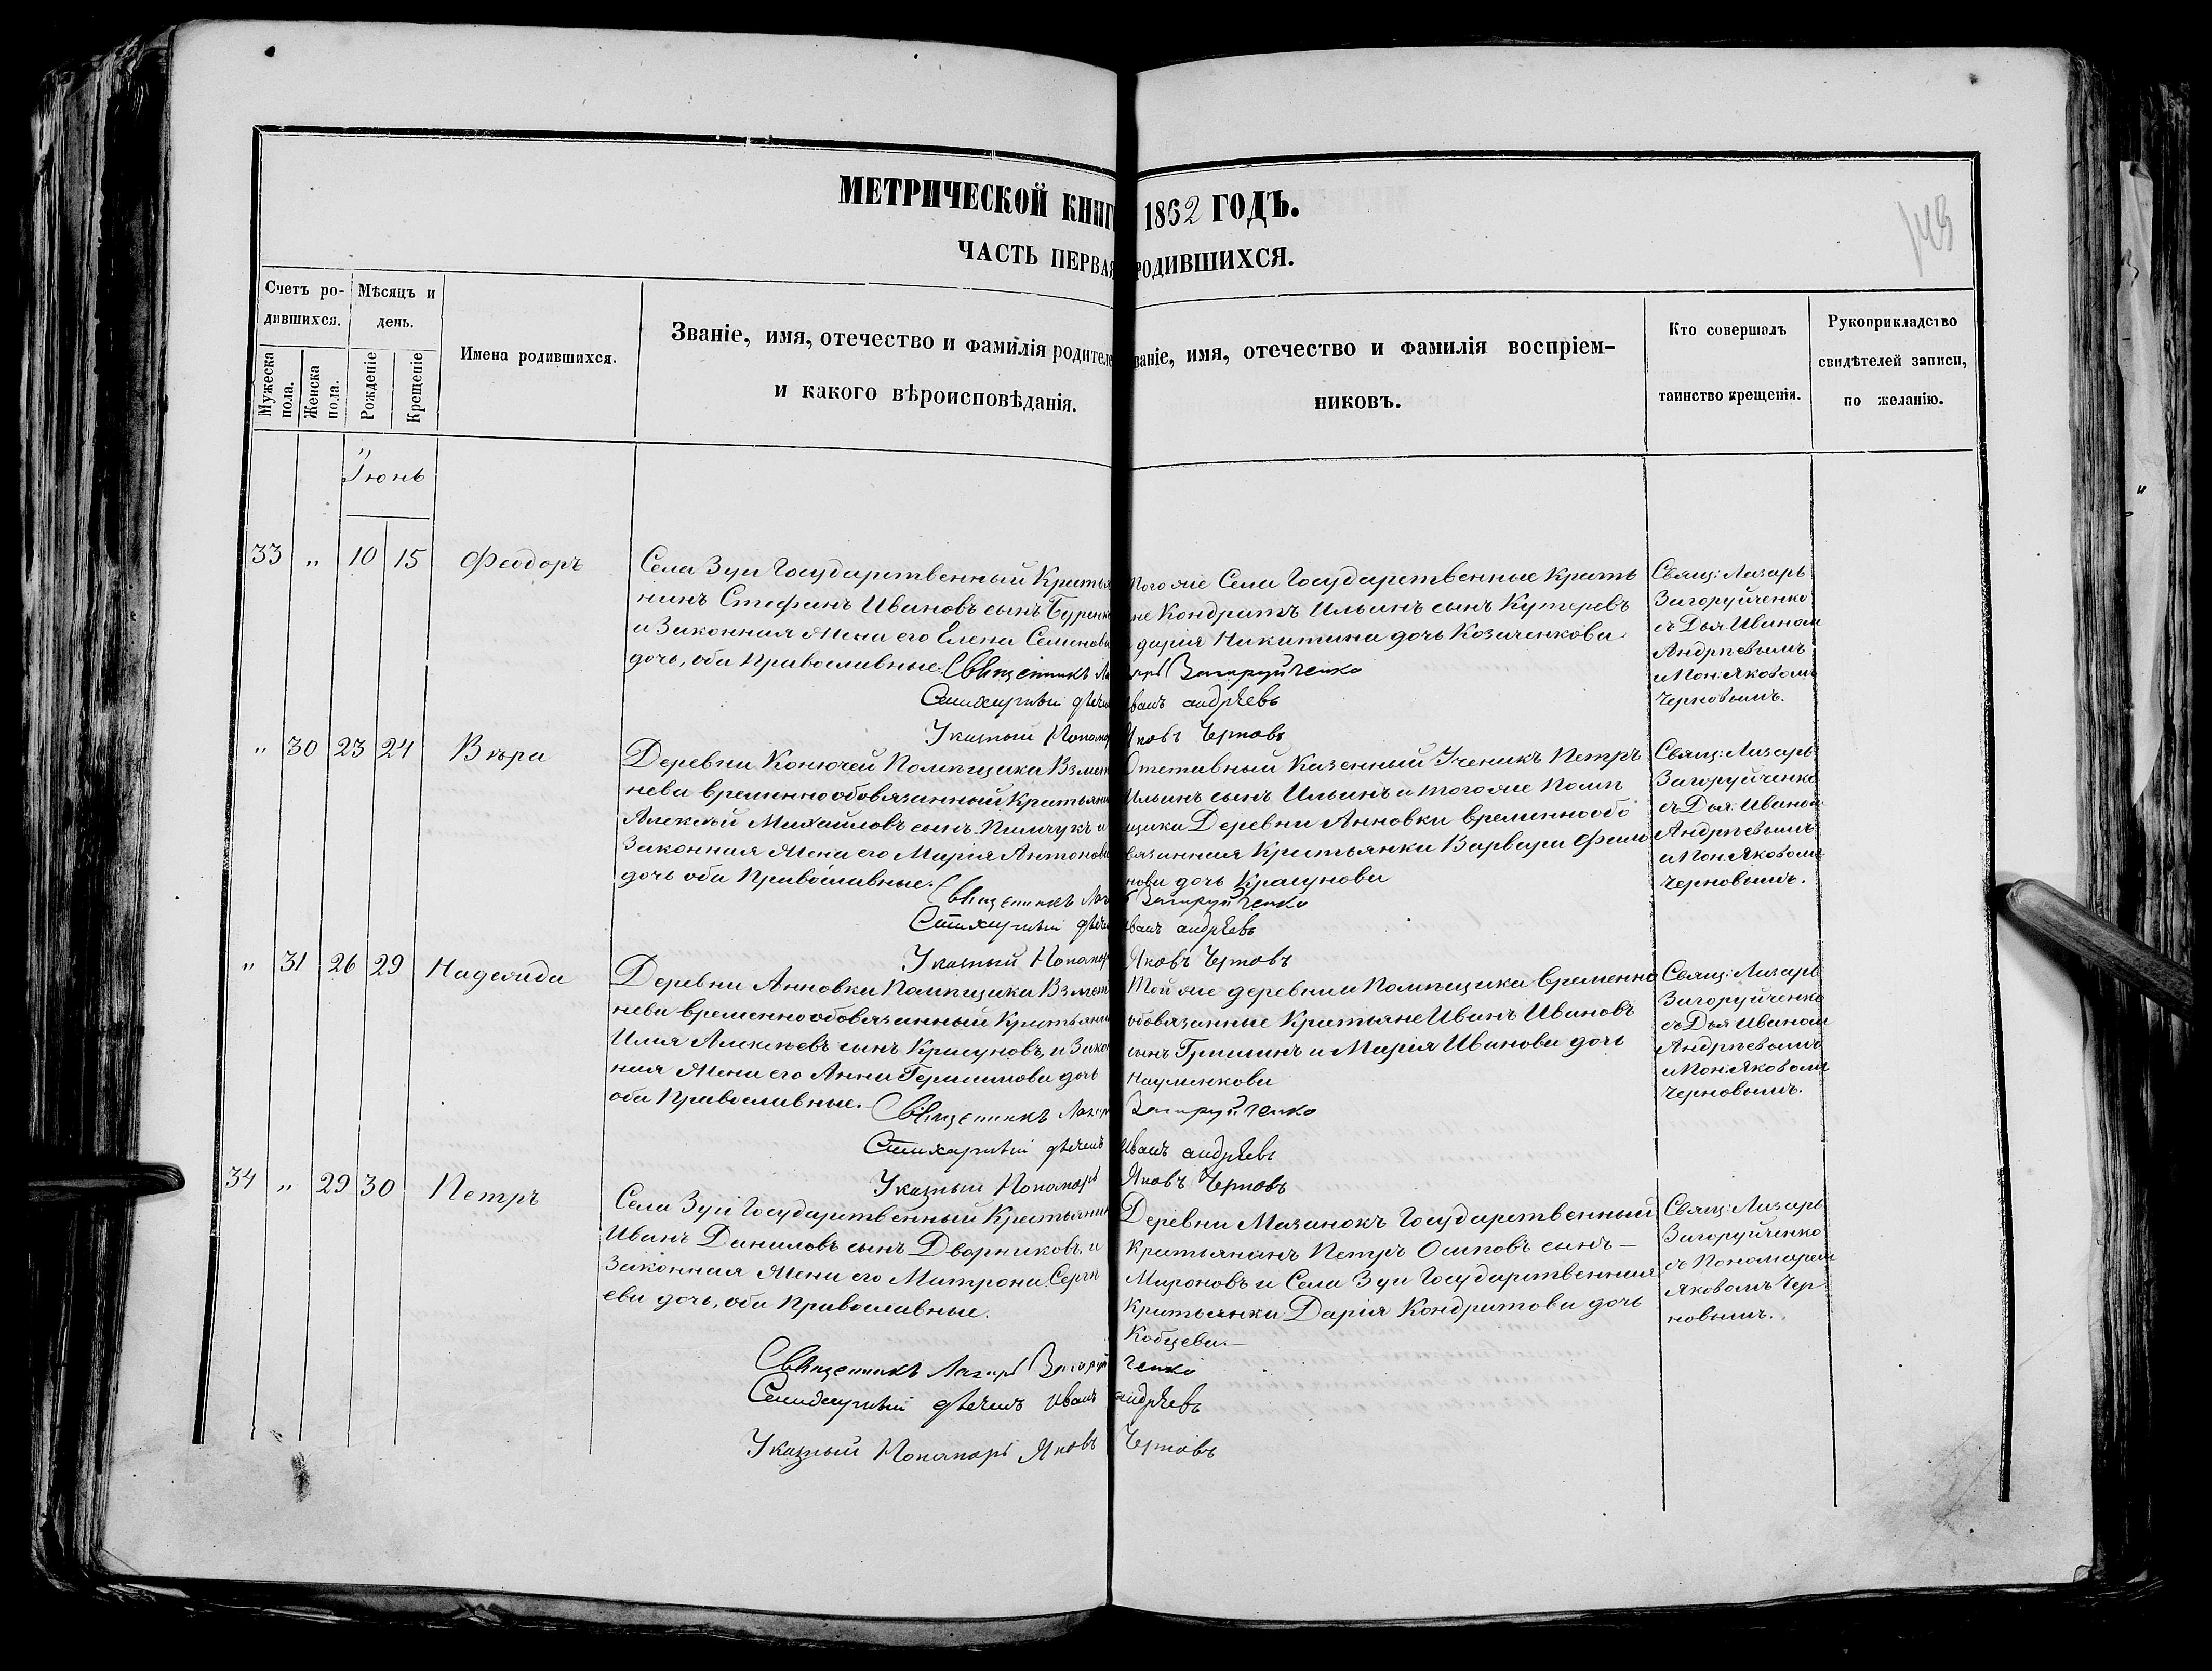 МЕТРИЧЕСКОЙ КНИГ 1862 ГОДЪ.
149
ЧАСТЬ ПЕРВАЯ РОДИВШИХСЯ.
Счетъ ро-
дившихся.
Мѣсяцъ и
день.
Мужеска
пола.
Женска
пола.
Рожденіе
Крещеніе
Имена родившихся.
Званіе, имя, отечество и фамилія родителе
и какого вѣроисповѣданія.
званіе, имя, отечество и фамилія воспріем-
никовъ.
Кто совершалъ
таинство крещенія.
Рукоприкладство
свидѣтелей записи,
по желанію.
„
Іюнь
33 „ 10 15 Феодоръ
Села Зуи Государственный Крестья
нинъ Стефанъ Ивановъ сынъ Буренко
и Законная Жена его Елена Семенова
дочь, оба Православные.
Того же Села Государственные Крестья
не Кондратъ Ильинъ сынъ Кутеревъ
и дарія Никитина дочь Козаченкова.
Свящ: Лазарь
Загоруйченко
съ Дья. Иваном
Андреевымъ
и Пон: Яковомъ
Черновымъ.
Священникъ Лазарь Загоруйченко
Стихарный дьячекъ Иванъ андреевъ
Указный Пономарь Яковъ Черновъ
„ 30 23 24 Вѣра
Деревни Конючей Помѣщика Взмет
нева временнообовязанный Крестьянин
Алексѣй Михайловъ сынъ Пилчукъ и
Законная Жена его Марія Антонова
дочь оба Православные.
Отставный Казенный Ученикъ Петръ
Ильинъ сынъ Ильинъ и того же Помѣ
щика Деревни Анновки временнообо
вязанная Крестьянка Варвара Фили
нова дочь Красунова
Свящ: Лазарь
Загоруйченко
съ Дья: Иваном
Андреевымъ
и Пон: Яковомъ
Черновымъ.
Священникъ Лазарь Загоруйченко
Стихарный дьячекъ Иванъ андреевъ
Указный Пономарь Яковъ Черновъ
„ 31 26 29 Надежда
Деревни Анновки Помѣщика Взмет
нева временнообовязанный Крестьянин
Илія Алексѣевъ сынъ Красуновъ, и Закон
ная Жена его Анна Герасимова дочь
оба Православные.
Той же деревни и Помѣщика временно
обовязанные Крестьяне Иванъ Ивановъ
сынъ Гришинъ и Марія Иванова дочь
Науменкова
Свящ: Лазарь
Загоруйченко
съ Дья Иваном
Андреевымъ
и Пон: Яковомъ
Черновымъ.
Священникъ Лазарь Загоруйченко
Стихарный дьячекъ Иванъ андреевъ
Указный Пономарь Яковъ Черновъ
34 „ 29 30 Петръ
Села Зуи Государственный Крестьянин
Иванъ Даниловъ сынъ Дворниковъ, и
Законная Жена его Матрона Сергѣ
ева дочь, оба Православные.
Деревни Мазанокъ Государственный
Крестьянинъ Петръ Осиповъ сынъ —
Мироновъ и Села Зуи Государственная
Крестьянка Дарія Кондратова дочь
Кобцева. —
Свящ: Лазарь
Загоруйченко
съ Пономарем
Яковомъ Чер
новымъ.
Священникъ Лазарь Загоруйченко
Стихарный дьячекъ Иванъ андреевъ
Указный Пономарь Яковъ Черновъ